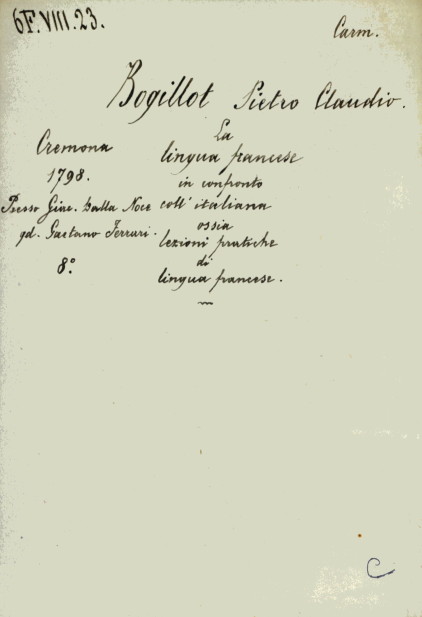 6F.VIII.23.
Carm.
Bogillot Pietro Claudio.
Cremona
1798.
Presso Giac. Dalla Noce
qd. Gaetano Ferrari.
8º
La
lingua francese
in confronto
coll' italiana
ossia
lezioni pratiche
di
lingua francese.
C